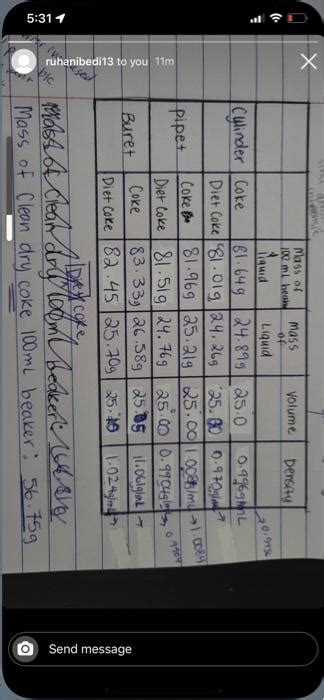 5:31
ruhanibedi13 to you 11m
Mass of 100 ml beaker & liquid Mass of Liquid Volume Density
Cylinder Coke 81.64g 24.89g 25.0 0.996g/mL → 0.9956
Diet Coke 81.01g 24.26g 25.0 0.970g/mL →
pipet Coke 81.96g 25.21g 25.00 1.008g/mL → 1.0084
Diet Coke 81.51g 24.76g 25.00 0.9904g/mL → 0.9904
Buret Coke 83.33g 26.58g 1.061g/mL →
Diet Coke 82.45 25.70g 1.02 g/mL →
Diet Coke
Mass of Clean dry 100ml beaker:
Mass of Clean dry coke 100mL beaker: 56.75g
Send message